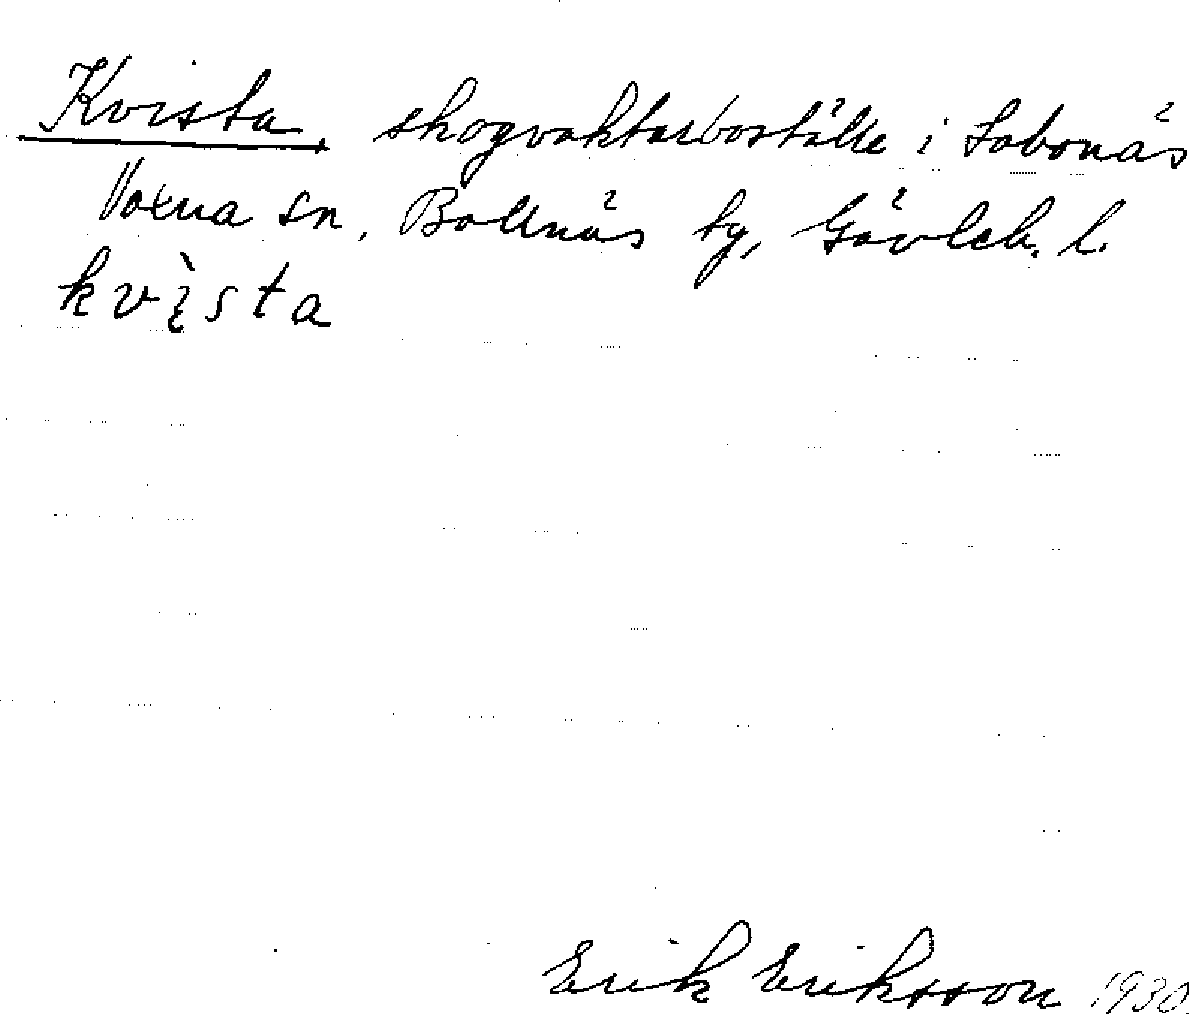 Kvista, skogvaktarboställe i Lobonäs
Voxna sn, Bollnäs tg, Gävleb. l.
kvìsta
Erik Eriksson 1930.